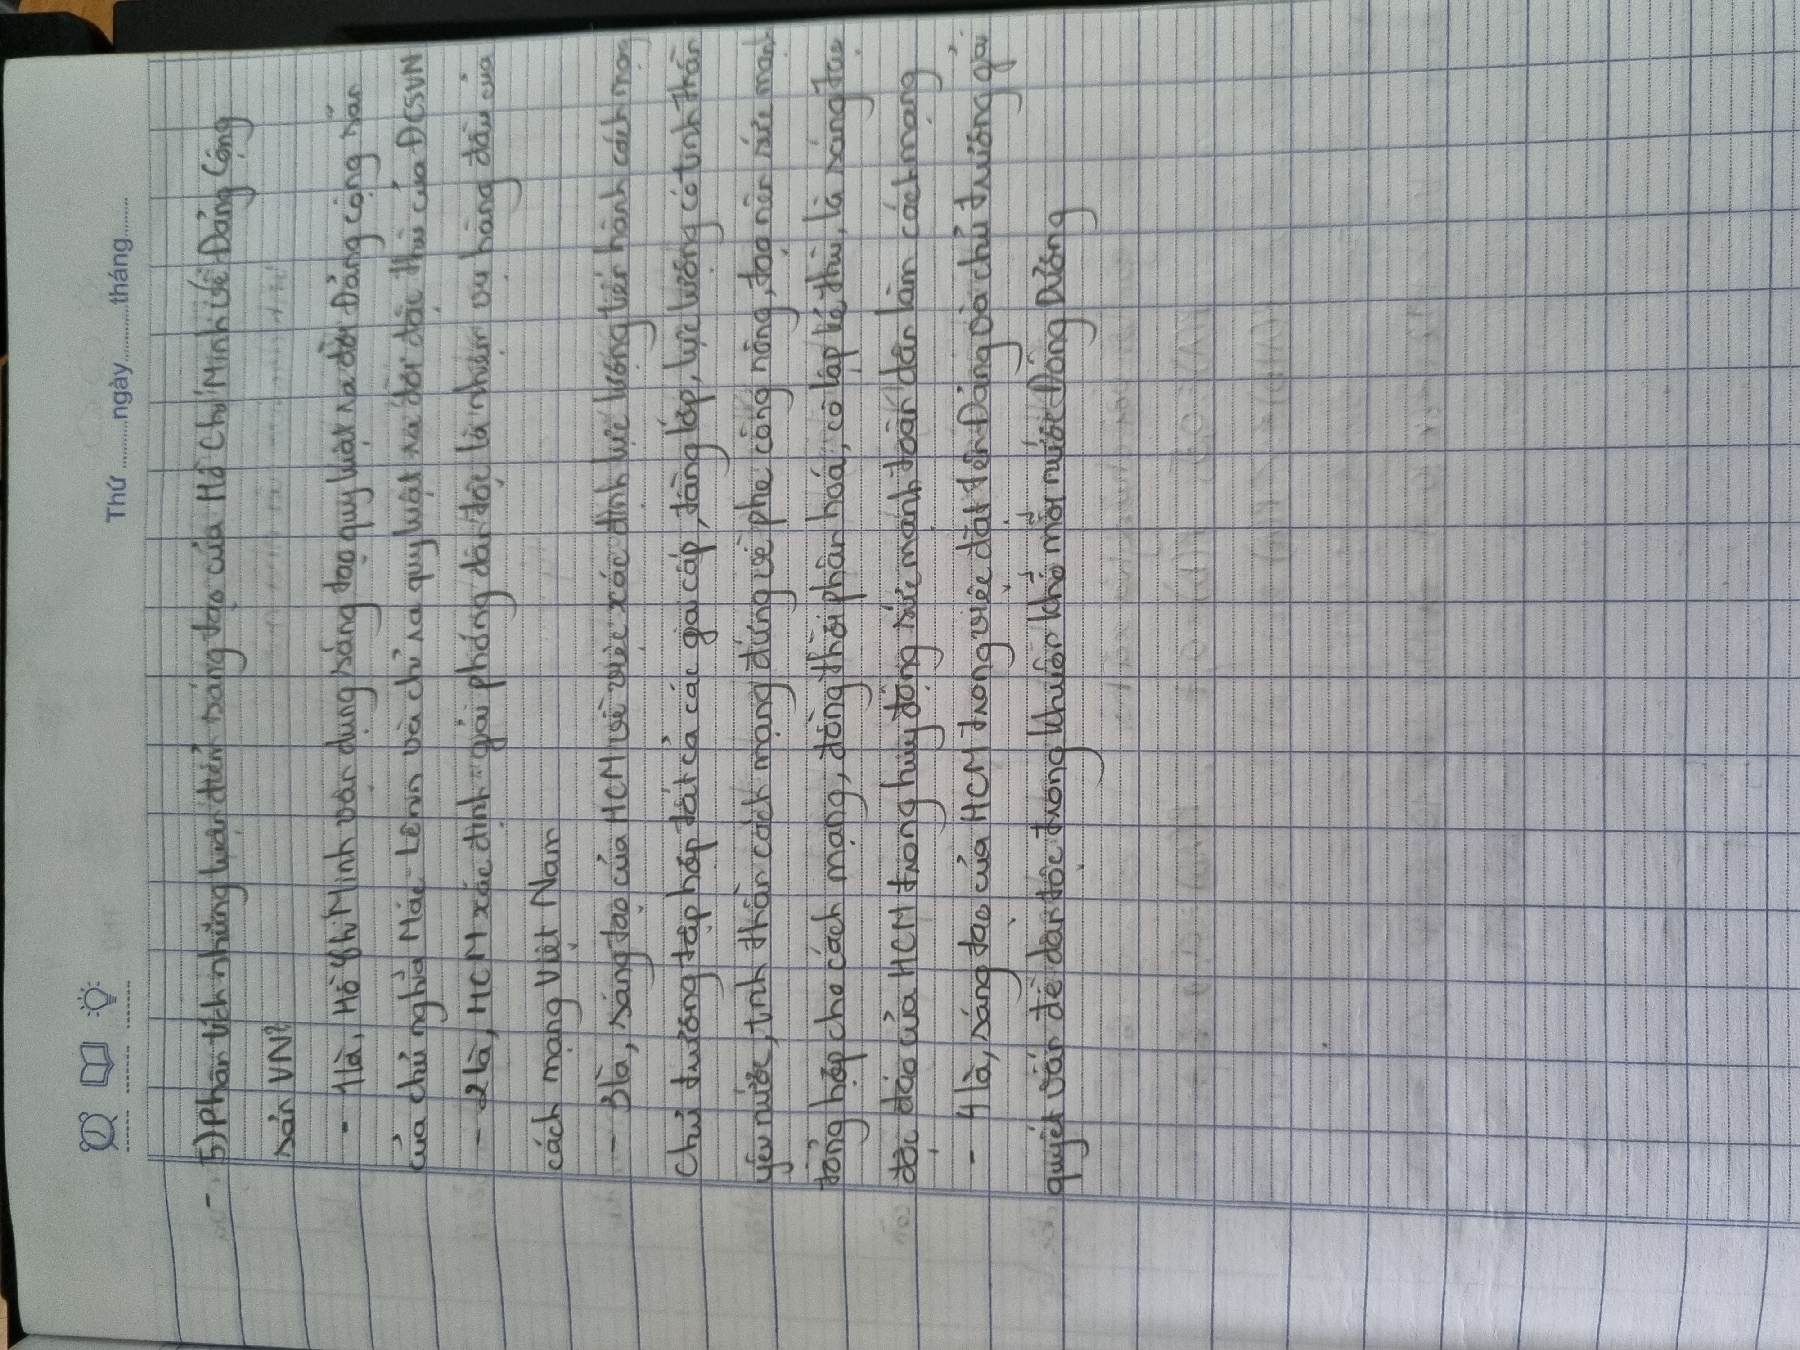 Thứ ..........ngày...........tháng........
- 5) Phân tích những luận điểm sáng tạo của Hồ Chí Minh về Đảng Cộng
sản VN?
- 1 là, Hồ Chí Minh vận dụng sáng tạo quy luật ra đời Đảng cộng sản
của chủ nghĩa Mác - Lênin và chỉ ra quy luật ra đời đặc thù của ĐCSVN
- 2 là, HCM xác định giải phóng dân tộc là nhiệm vụ hàng đầu của
cách mạng Việt Nam
- 3 là, sáng tạo của HCM về việc xác định lực lượng tiến hành cách mạng
Chủ trương tập hợp tất cả các giai cấp, tầng lớp, lực lượng có tinh thần
yêu nước, tinh thần cách mạng đứng về phe công nông, tạo nên sức mạnh
tổng hợp cho cách mạng, đồng thời phân hoá, cô lập kẻ thù, là sáng tạo
độc đáo của HCM trong huy động sức mạnh toàn dân làm cách mạng
- 4 là, sáng tạo của HCM trong việc đặt tên Đảng và chủ trương giải
quyết vấn đề dân tộc trong khuôn khổ mỗi nước Đông Dương